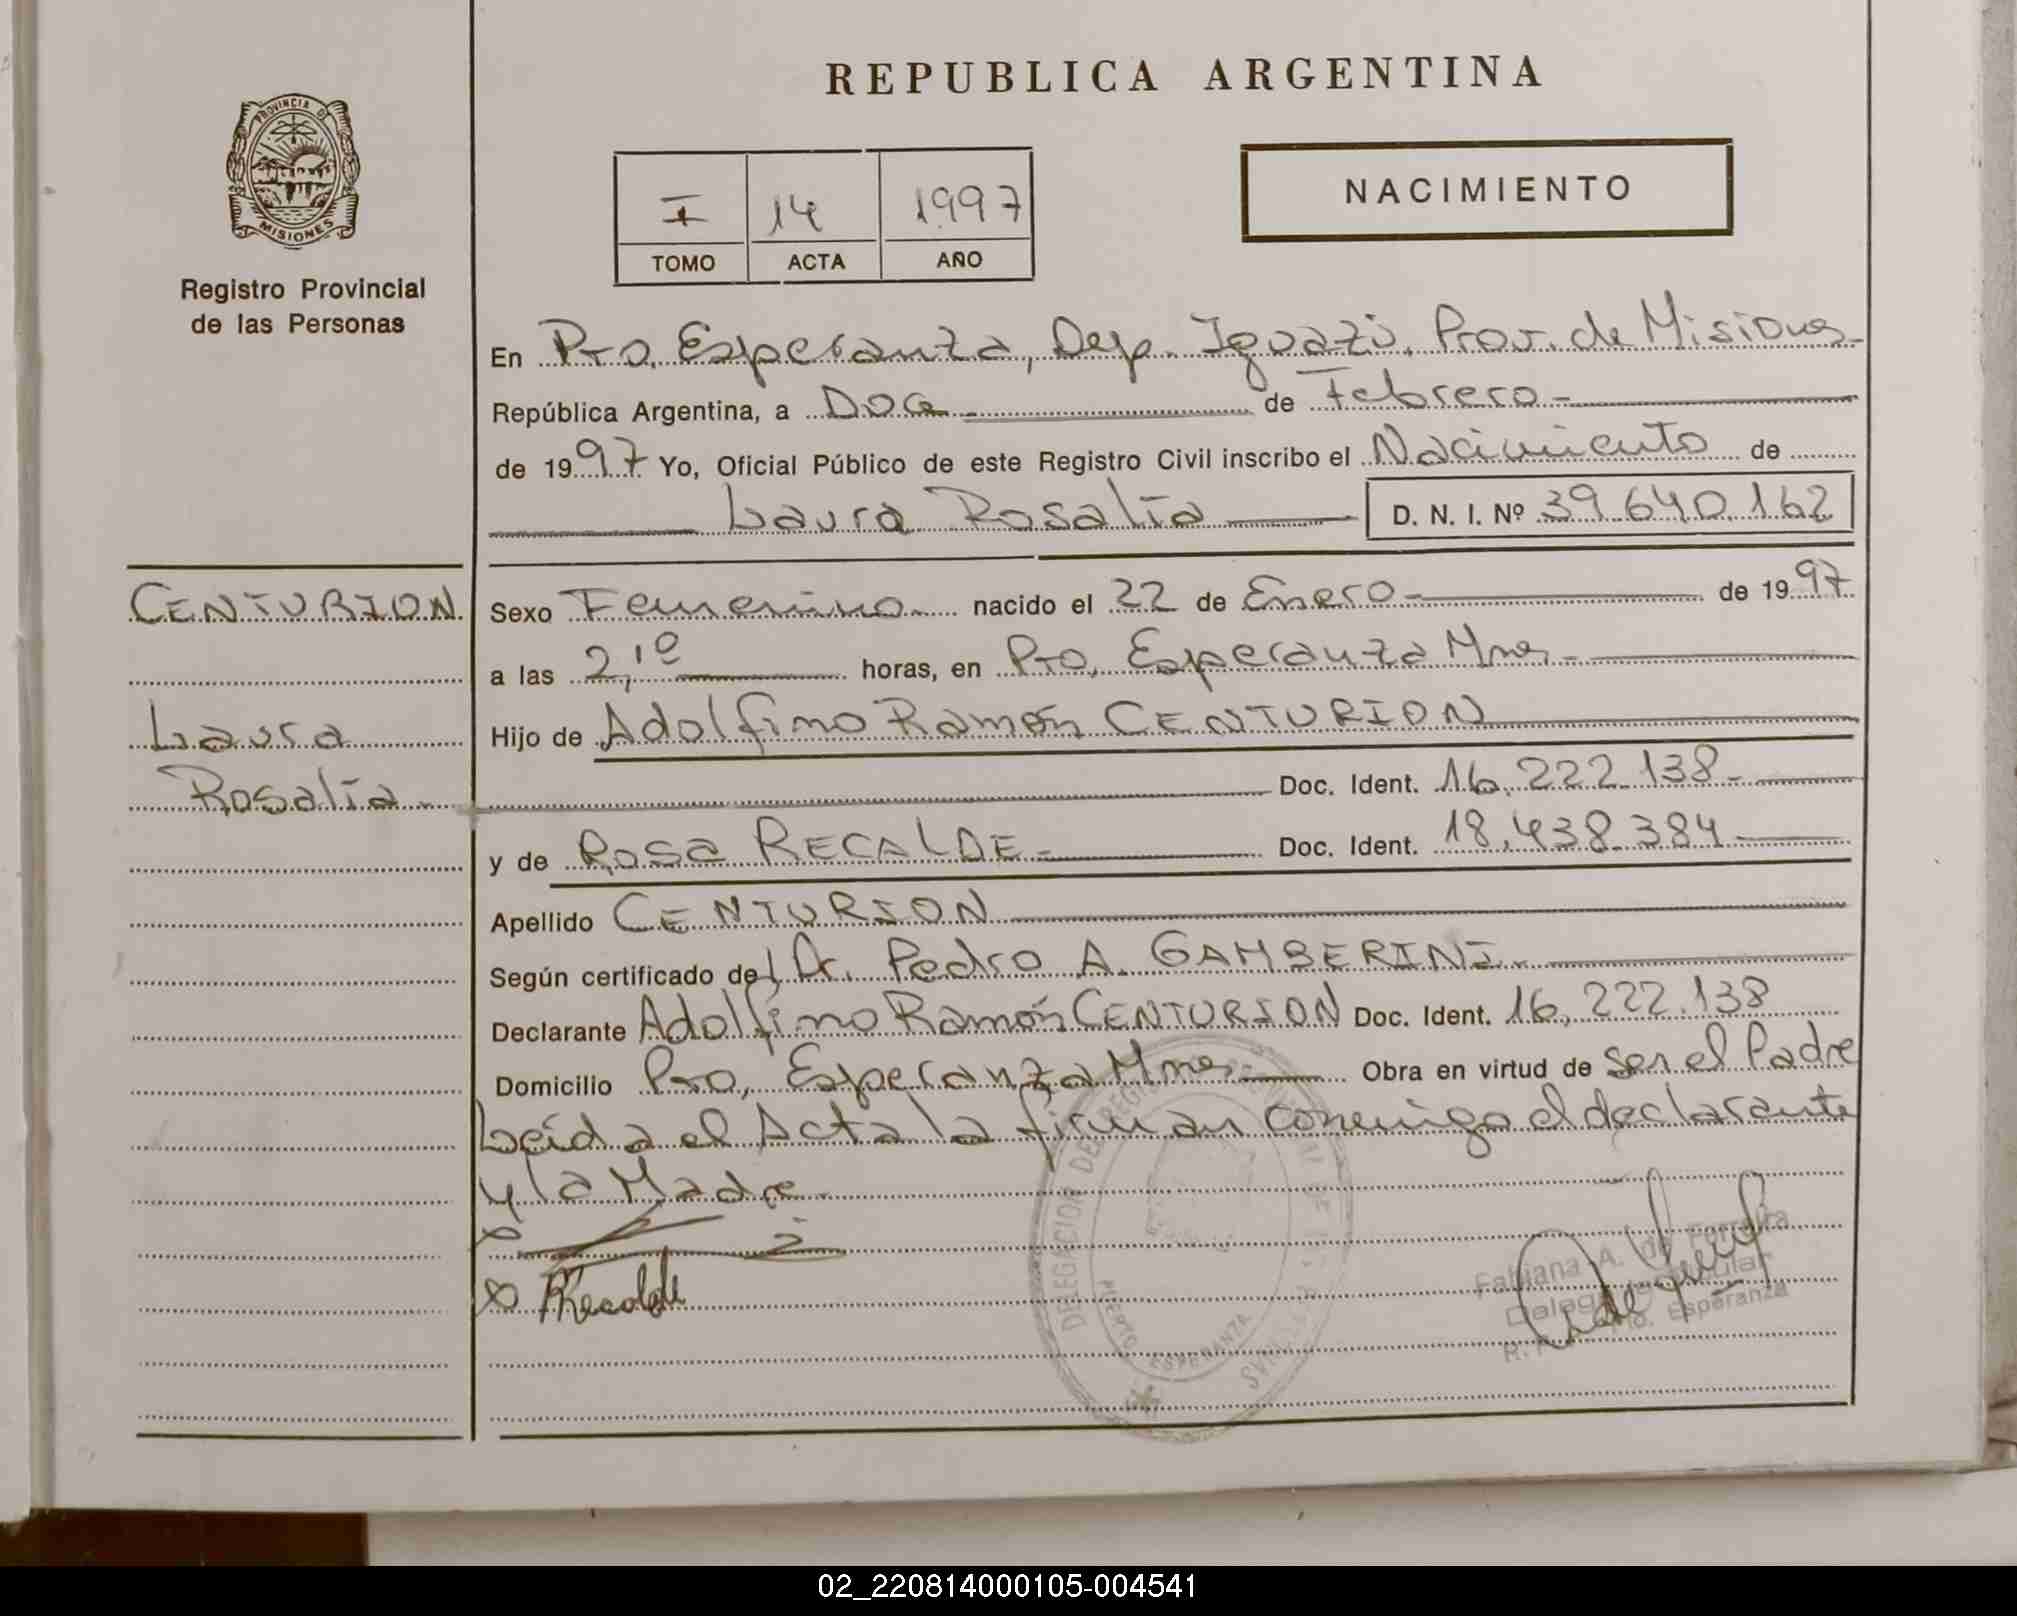 REPUBLICA ARGENTINA
PROVINCIA DE
MISIONES
Registro Provincial
de las Personas
I 14 1997
TOMO ACTA AÑO
NACIMIENTO
En Pto. Esperanza, Dep. Iguazú, Prov. de Misiones
República Argentina, a Doce de Febrero
de 1997 Yo, Oficial Público de este Registro Civil inscribo el Nacimiento de
Laura Rosalía D. N. I. Nº 39.640.162
CENTURION
Laura
Rosalía
Sexo Femenino nacido el 22 de Enero de 1997
a las 2,10 horas, en Pto. Esperanza Mnes
Hijo de Adolfino Ramón CENTURION
Doc. Ident. 16.222.138
y de Rosa RECALDE Doc. Ident. 18.438.384
Apellido CENTURION
Según certificado del Dr. Pedro A. GAMBERINI
Declarante Adolfino Ramón CENTURION Doc. Ident. 16.222.138
Domicilio Pto. Esperanza Mnes Obra en virtud de ser el Padre
Leída el Acta la firman conmigo el declarante
y la Madre
RRecalde
DELEGACION DEL REGISTRO
PUERTO ESPERANZA
Fabiana A. de Ferreira
Esperanza
02_220814000105-004541